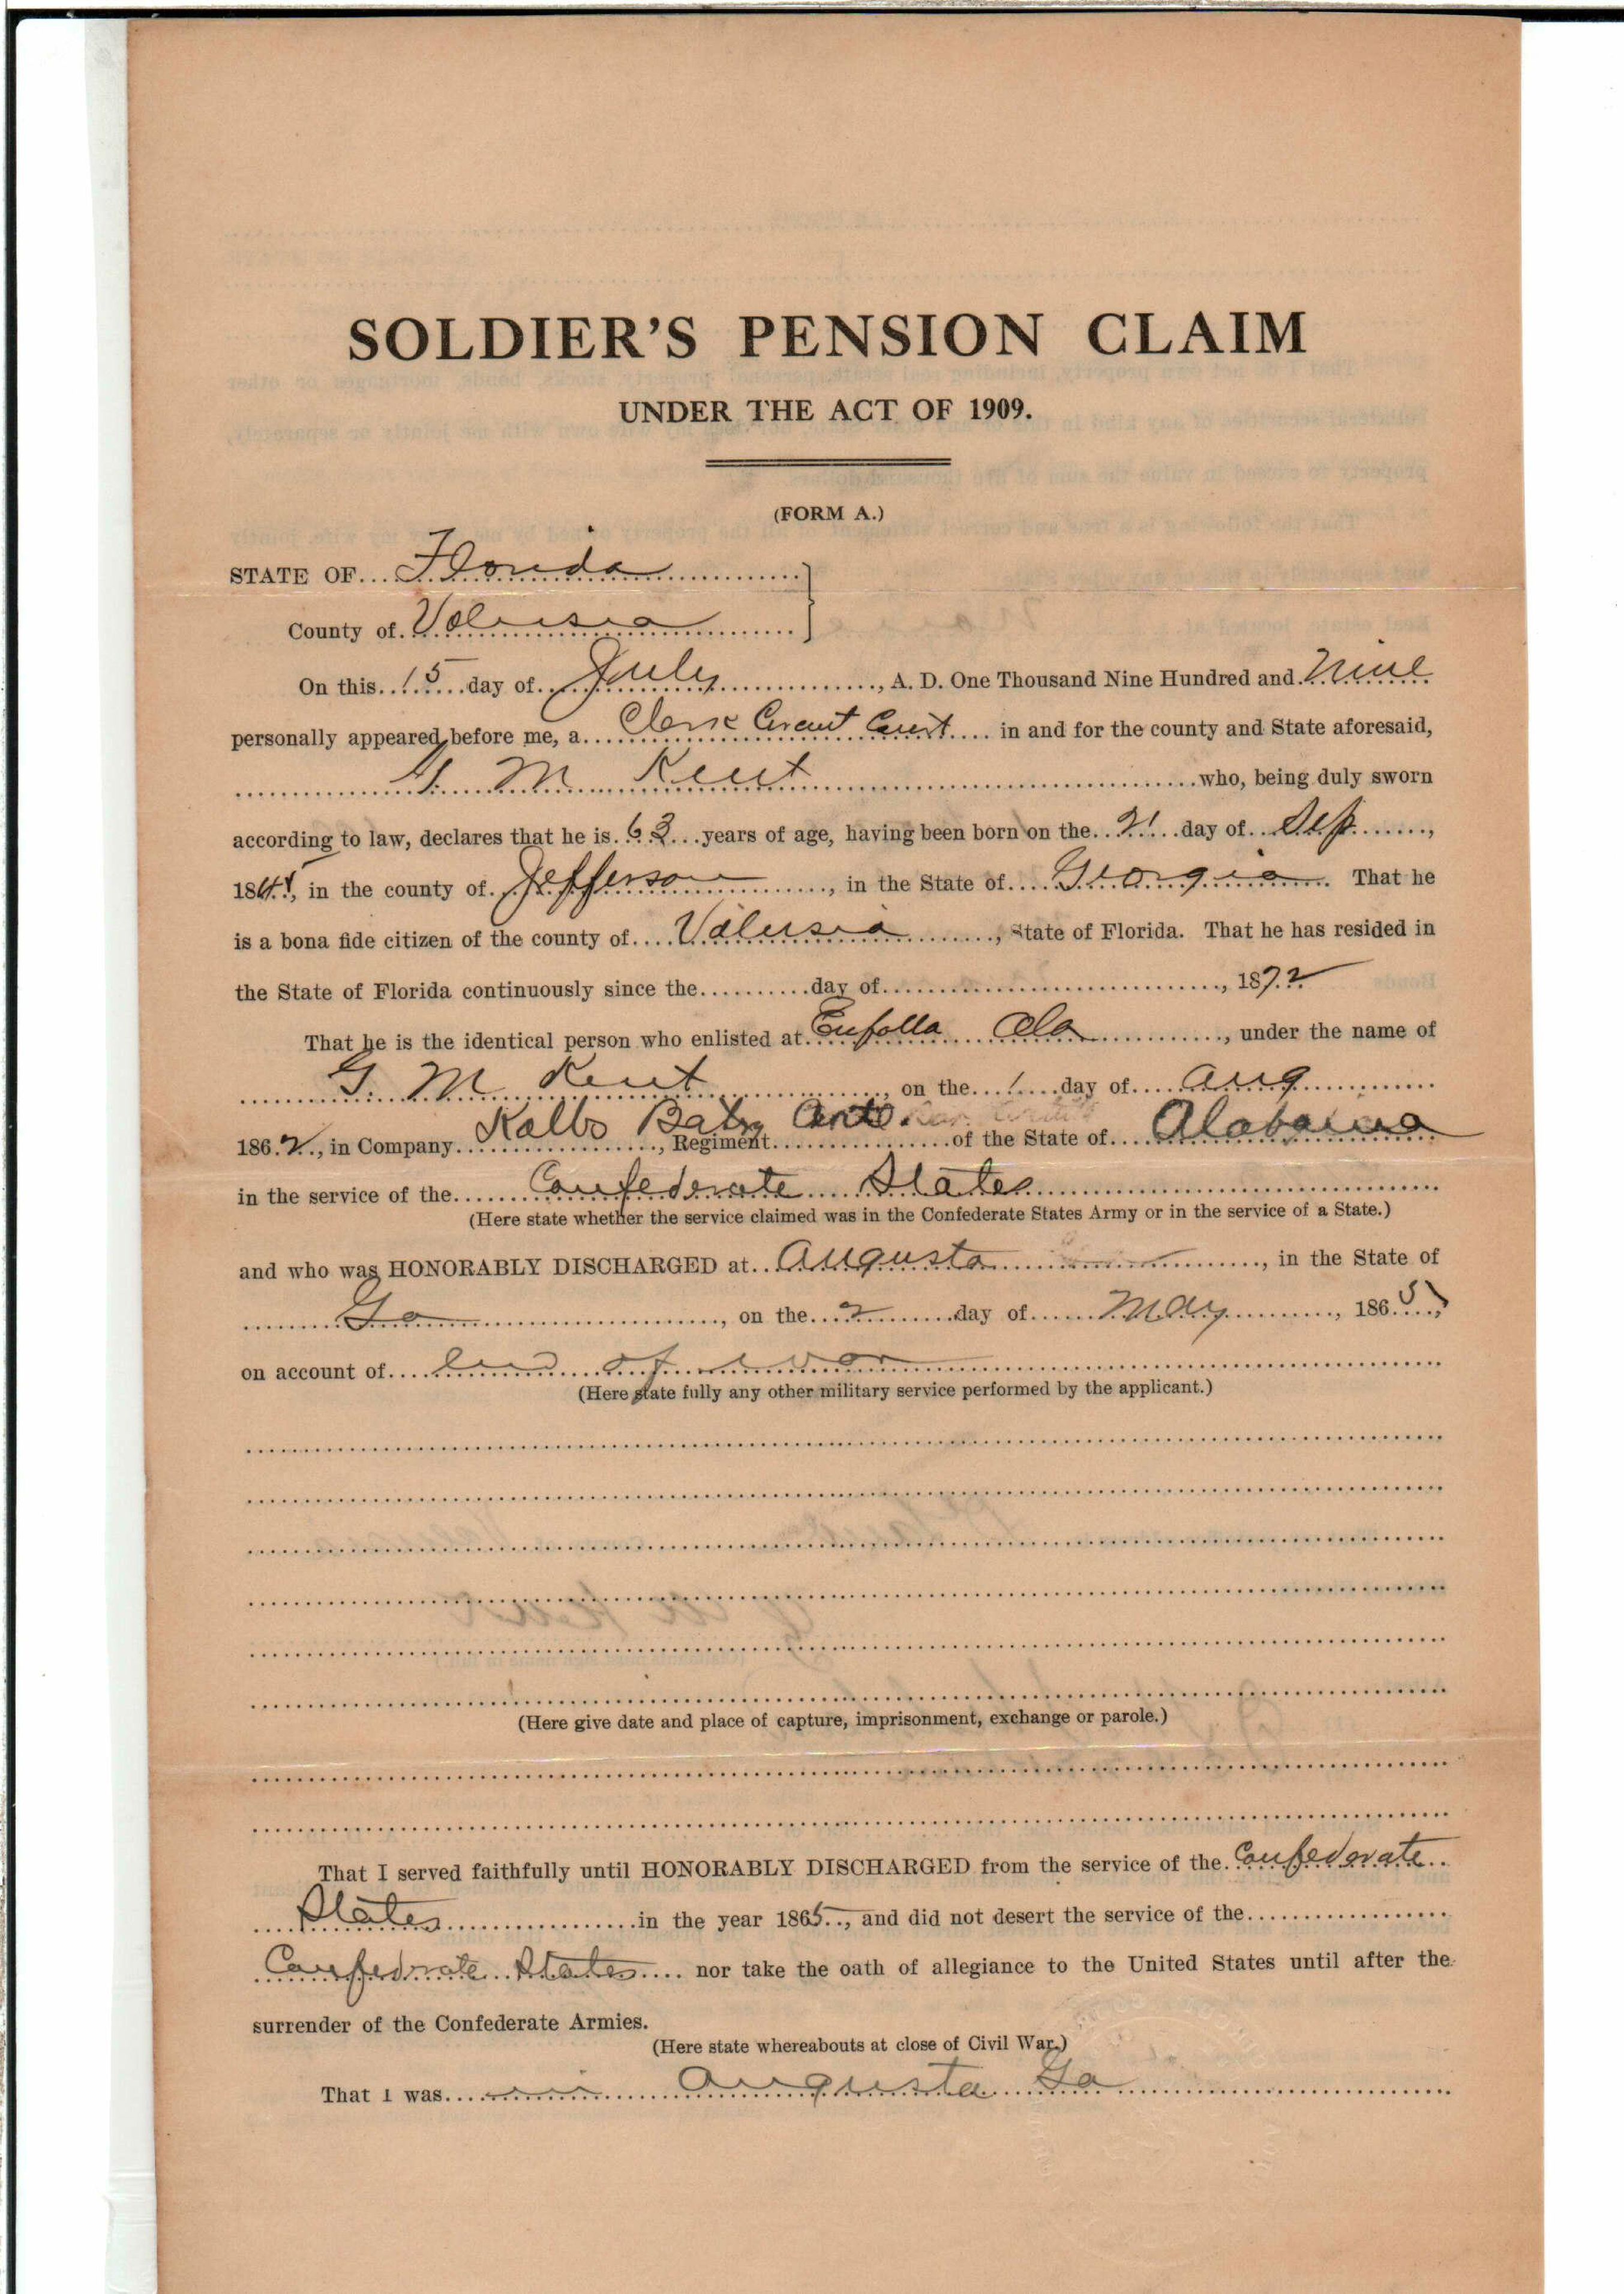 SOLDIER'S PENSION CLAIM
UNDER THE ACT OF 1909.
(FORM A.)
STATE OF Florida
County of Volusia
On this 15 day of July, A. D. One Thousand Nine Hundred and Nine
personally appeared before me, a Clerk Circuit Court in and for the county and State aforesaid,
G. M Kent who, being duly sworn
according to law, declares that he is 63 years of age, having been born on the 21 day of Sep,
184, in the county of Jefferson, in the State of Georgia. That he
is a bona fide citizen of the county of Volusia, State of Florida. That he has resided in
the State of Florida continuously since the day of, 1872
That he is the identical person who enlisted at Eufalla Ala, under the name of
G. M Kent, on the 1 day of Aug
1862, in Company Kolbs Baty, Regiment of the State of Alabama
in the service of the Confederate States
(Here state whether the service claimed was in the Confederate States Army or in the service of a State.)
and who was HONORABLY DISCHARGED at Augusta, in the State of
Ga, on the 2 day of May, 1865,
on account of end of war
(Here state fully any other military service performed by the applicant.)
(Here give date and place of capture, imprisonment, exchange or parole.)
That I served faithfully until HONORABLY DISCHARGED from the service of the Confederate
States in the year 1865, and did not desert the service of the
Confederate States nor take the oath of allegiance to the United States until after the
surrender of the Confederate Armies.
(Here state whereabouts at close of Civil War.)
That I was in Augusta Ga